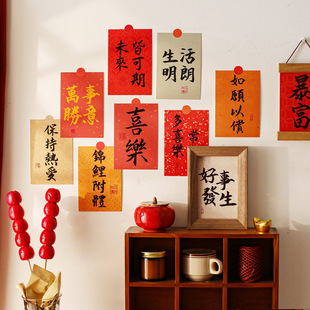 未來
皆可期
生活
明朗
萬事
勝意
喜樂
多喜樂
常
如願以償
暴富
保持熱愛
錦鯉附體
好事
發生